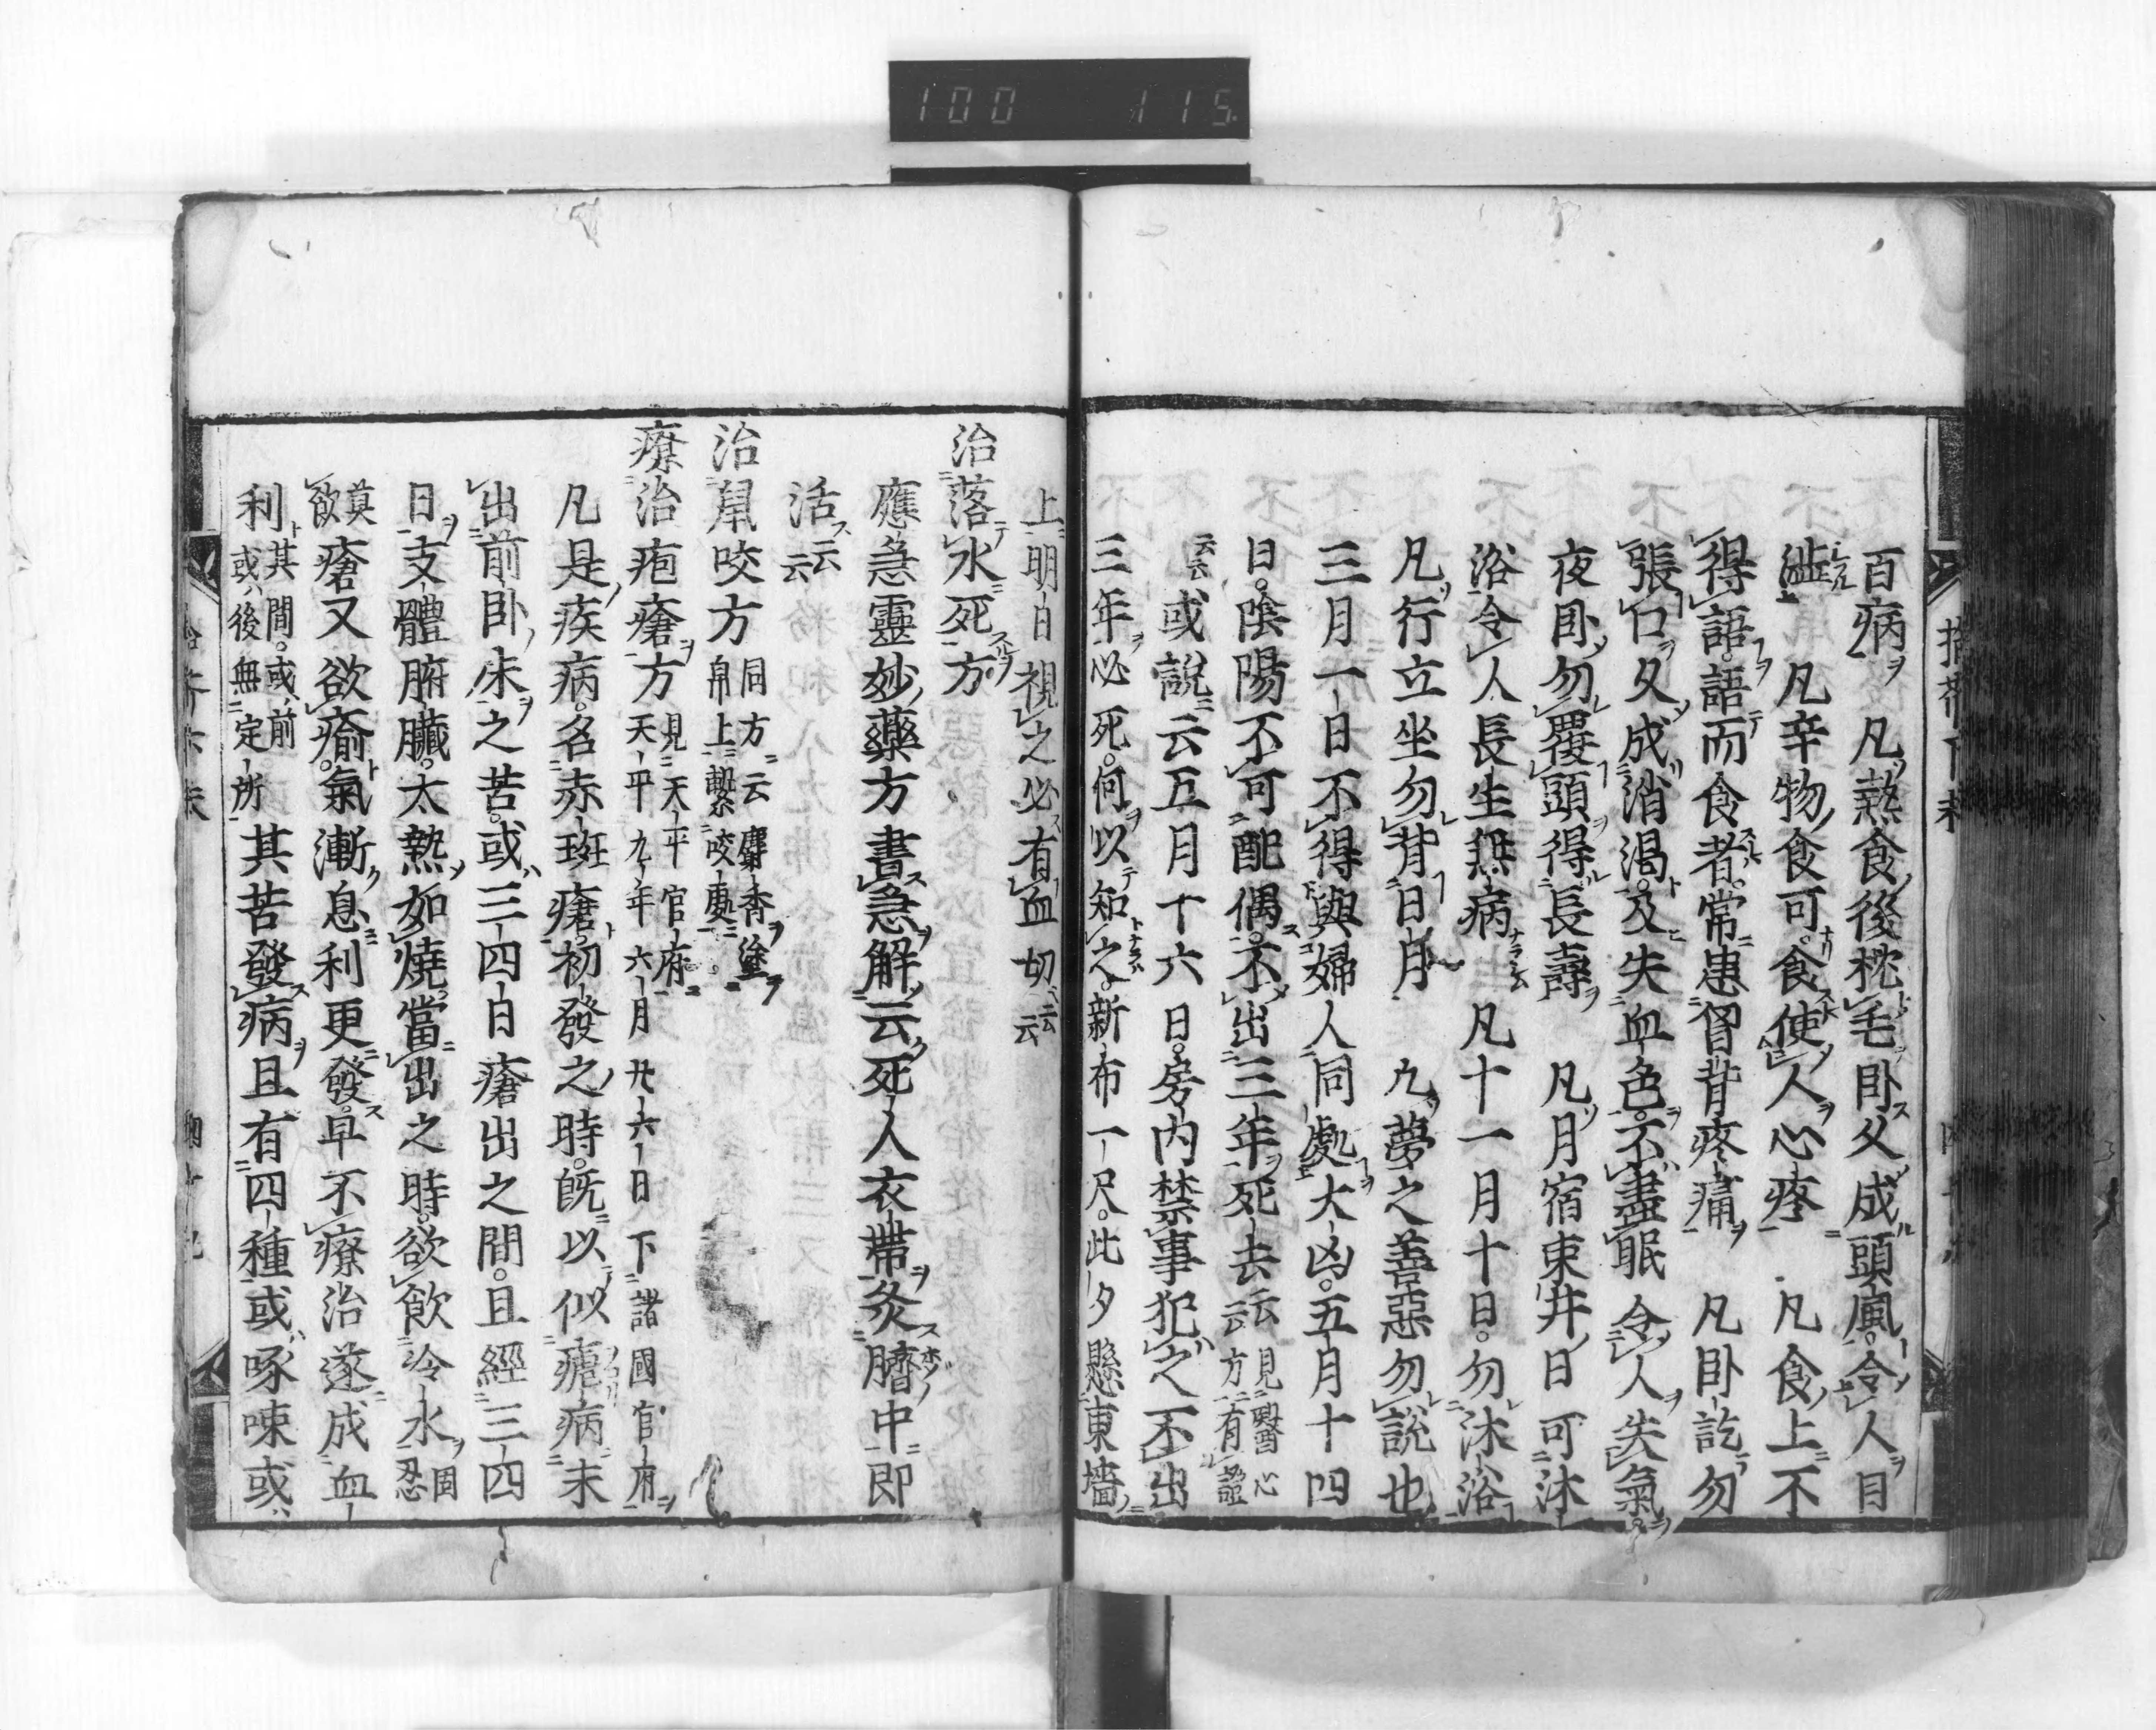 100 115
百病 凡熱食後枕毛臥久成頭風令人目
澁 凡辛物食可食使人心疼 凡食上不
得語語而食者常患督背疼痛 凡臥訖勿
張口久成消渴及失血色不盡眠令人失氣
夜臥勿覆頭得長壽 凡月宿東井日可沐
浴令人長生無病 凡十一月十日勿沐浴
凡行立坐勿背日月 凡夢之善惡勿説也
三月一日不得與婦人同處大凶五月十四
日陰陽不可配偶不出三年死去云云見醫心方有證
云云或説云五月十六日房内禁事犯之不出
三年必死何以知之新布一尺此夕懸東墻
上明日視之必有血切云云
治落水死方
應急靈妙藥方書急解云死人衣帶灸臍中即
活云云
治鼠咬方同方云麝香塗帛上繫咬處
療治疱瘡方見天平官府天平九年六月廿六日下諸國官府
凡是疾病名赤斑瘡初發之時既以似瘧病未
出前臥床之苦或三四日瘡出之間且經三四
日支體腑臟太熱如燒當出之時欲飲冷水固忍
莫飲瘡又欲瘉氣漸息利更發早不療治遂成血
利其間或前或後無定所其苦發病且有四種或啄㖨或